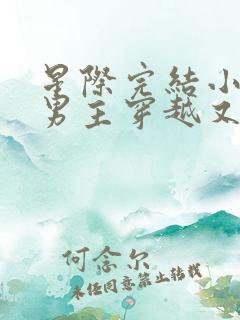 星際完結小
男主穿越又
何念尔
未经同意禁止转载